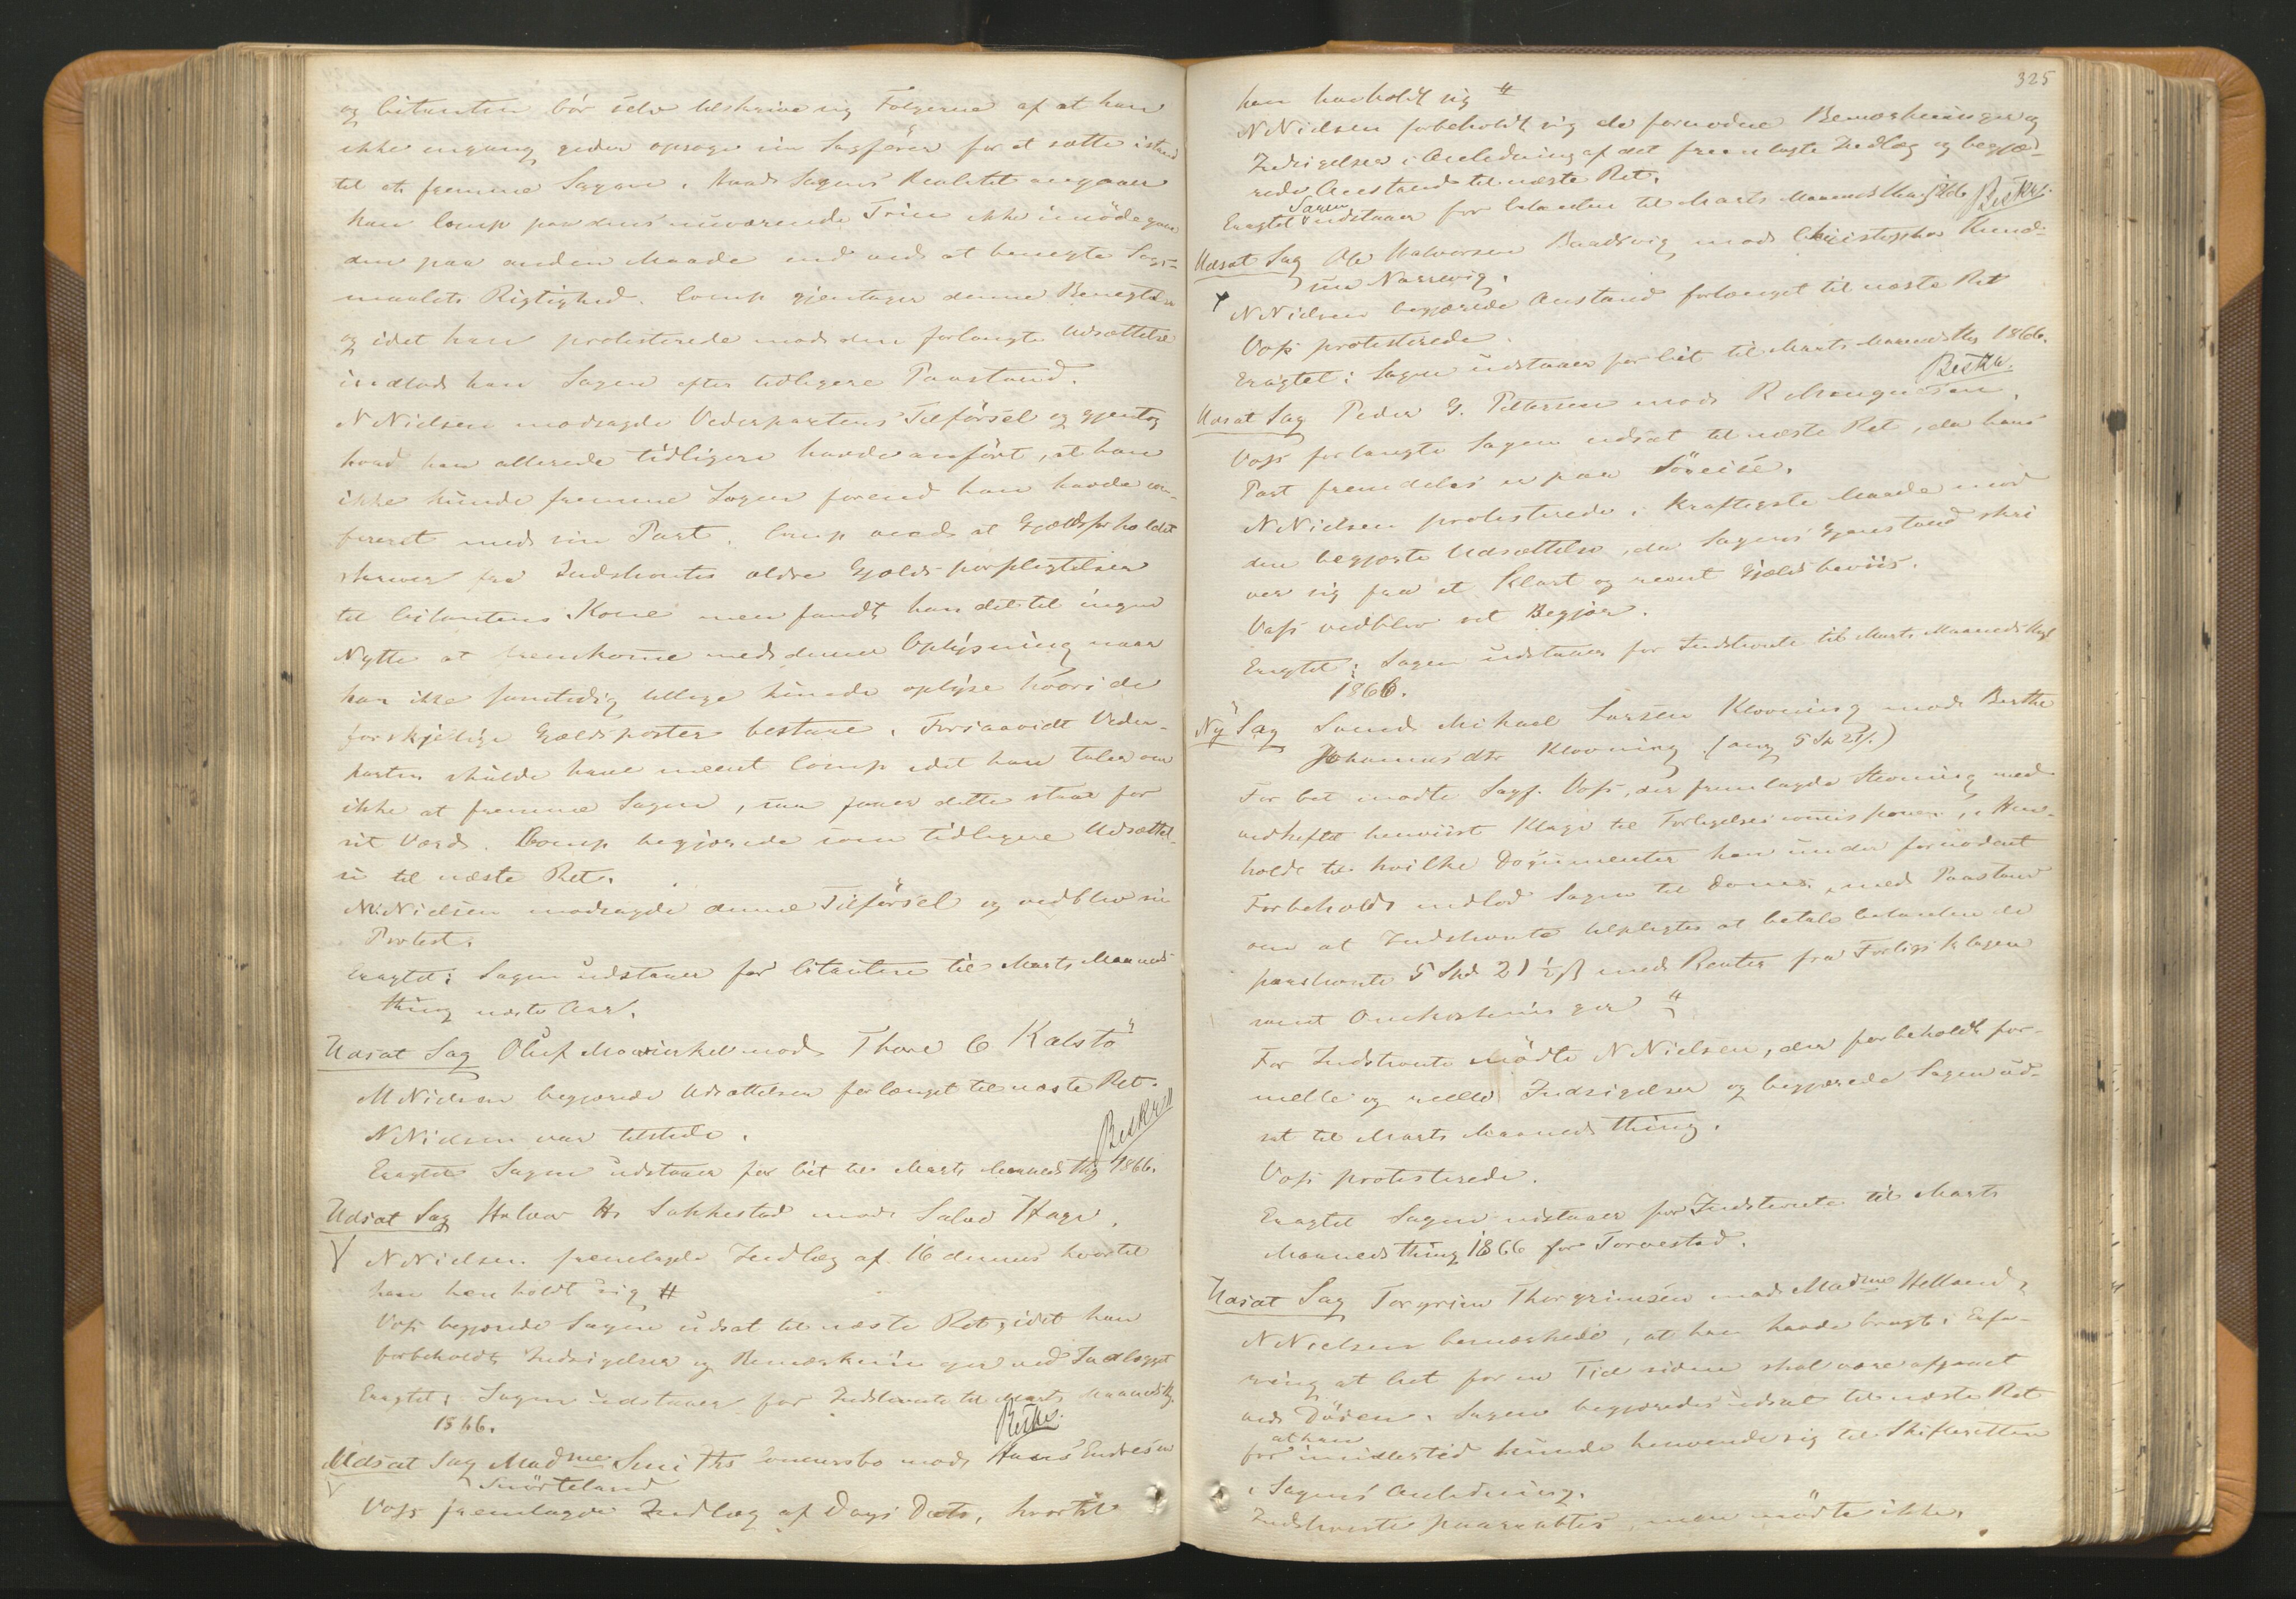 og Citanten bör selv tilskrive sig Følgerne af at han
ikke engang gider opsøge sin Sagförer for at sætte istand
til at fremme Sagen. Hvad Sagens Realitet angaaer
kan Comp paa dens nuværende Trin ikke imödegaae
den paa anden Maade end ved at benegte Sags-
maalets Rigtighed. Comp gjentager denne Benegtelse
og idet han protesterede mod den forlangte Udsættelse
indlod han Sagen efter tidligere Paastand.
N Nielsen modsagde Vederpartens Tilförsel og gjentog
hvad han allerede tidligere havde anfört, at han
ikke kunde fremme Sagen forend han havde con-
fereret med sin Part. Comp veed at Gjældsforholdet
skriver fra Indstevntes ældre Gjælds forpligtelser
til Citantens Kone men fandt han det til ingen
Nytte at fremkomme med denne Oplysning naar
han ikke samtidig tillige kunde oplyse hvori de
forskjellige Gjældsposter bestaae. Forsaavidt Veder-
parten skulde have meent Comp idet han taler om
ikke at fremme Sagen, saa faaer dette staae for
sit Værd. Comp begjærede som tidligere Udsættel-
se til næste Ret.
N. Nielsen modsagde denne Tilförsel og vedblev sin
Protest.
Eragtet: Sagen udstaaer for Citanten til Marts Maaneds
thing næste Aar.
Udsat Sag Oluf Mowinkel mod Thore C Kalstö
M Nielsen begjærede Udsættelsen forlænget til næste Ret.
N Nielsen var tilstede.
Eragtet Sagen udstaaer for Cit til Marts Maaneds Thg 1866.
Beskr
Udsat Sag Halvor Hs Sakkestad mod Salve Hage.
N Nielsen fremlagde Indlæg af 16 dennes hvortil
han henholdt sig #
Voss begjærede Sagen udsat til næste Ret, idet han
forbeholdt Indsigelser og Bemærkninger ved Indlægget
Eragtet: Sagen udstaaer for Indstevnte til Marts Maaneds Thg
1866. Beskr.
Udsat Sag Madme Smiths mod Hans Endresen
Snörteland
Voss fremlagde Indlæg af Dags Dato, hvortil
325
han henholdt sig #
N Nielsen forbeholdt sig de fornødne Bemærkninger og
Indsigelser i Anledning af det fremlagte Indlæg og begjæ-
rede Anstand til næste Ret.
Eragtet Sagen udstaaer for Citanten til Marts Maaneds Beskr.
Udsat Sag Ole Halvorsen Baadsvig mod Christopher Knud-
sen Narrevig.
N Nielsen begjærede Anstand forlænget til næste Ret
Voss protesterede.
Eragtet: Sagen udstaaer for Cit til Marts Maaneds Thg 1866.
Beskr.
Udsat Sag Peder G. Pettersen mod R
Voss forlangte Sagen udsat til næste Ret, da hans
Part fremdeles er paa Söreise.
N Nielsen protesterede i kraftigste Maade mod
den begjærte Udsættelse, da Sagens Gjenstand skri
ver sig fra et klart og reent Gjældsbeviis.
Voss vedblev sit Begjær.
Eragtet: Sagen udstaaer for Indstevnte til Marts Maaneds
1866.
Ny Sag Svend Mikael Larsen Klovning mod Berthe
Johannesdtr Klovning (ang 5 Sp 21)
For Cit mødte Sagf. Voss, der fremlagde Stevning med
vedheftet henviist Klage til Forligelsescommissionen, i Hen-
hold til hvilke Documenter han under fornödent
Forbehold indlod Sagen til Doms med Paastand
om at Indstevnte tilpligtes at betale Citanten de
paastevnte 5 Spd 21 ½ ß med Renter fra Forligsklagen
samt Omkostninger #
For Indstevnte mödte N Nielsen, der forbeholdt for-
melle og reelle Indsigelser og begjærede Sagen ud-
sat til Marts Maaneds thing.
Voss protesterede.
Eragtet Sagen udstaaer for Indstevnte til Marts
Maaneds thing 1866 for Torvestad.
Udsat Sag Torgrim Thorgrimsen mod Madme Helland,
N Nielsen bemærkede, at han havde bragt i Erfa-
ring at Cit for en Tid siden skal være afgaaet
ved Döden. Sagen begjæredes udsat til næste Ret
for at han imidlertid kunde henvende sig til Skifteretten
i Sagens Anledning.
Indstevnte paaraabtes, men mödte ikke.